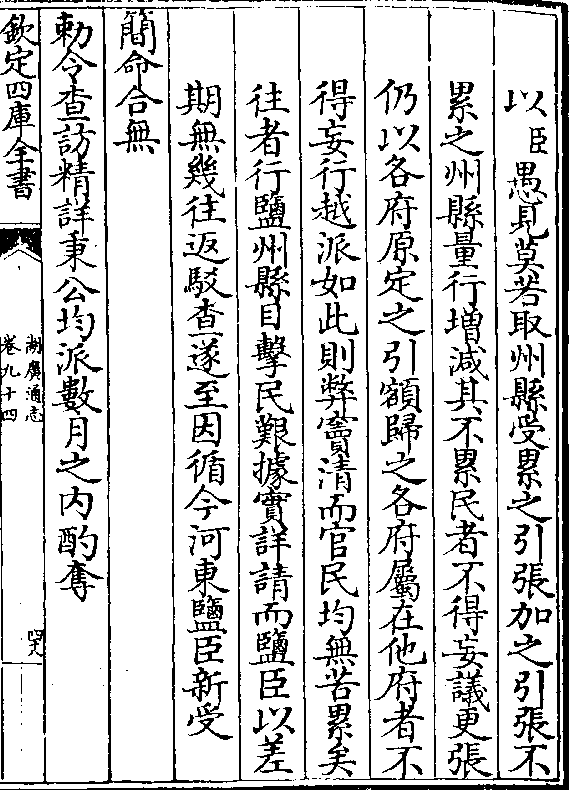 以臣愚見莫若取州縣受累之引張加之引張不
累之州縣量行增減其不累民者不得妄議更張
仍以各府原定之引額歸之各府屬在他府者不
得妄行越派如此則弊竇清而官民均無苦累矣
往者行鹽州縣目擊民艱據實詳請而鹽臣以差
期無幾往返駁查遂至因循今河東鹽臣新受
簡命合無
勅令查訪精詳秉公均派數月之內酌奪
欽定四庫全書
湖廣通志
卷九十四